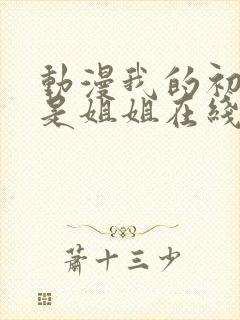 動漫我的初
是姐姐在綫
蕭十三少